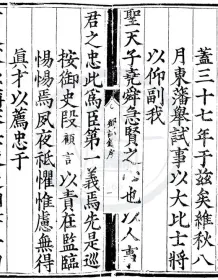 蓋三十七年于茲矣維秋八
月東藩舉試事以大比士將
以仰副我
聖天子堯舜急賢之心也以人事
君之忠此為臣第一義焉先是巡
按御史段顧言以責在監臨
惕惕焉夙夜祗懼惟慮無得
真才以薦忠于